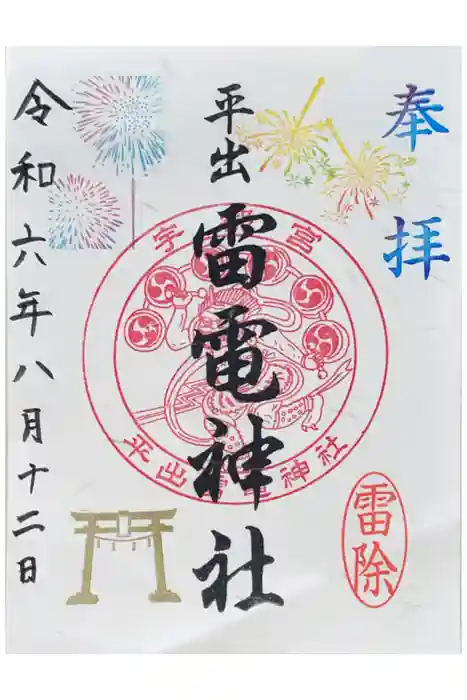 奉拝
雷除
平出
雷電神社
宇都宮
平出雷電神社
令和六年八月十二日